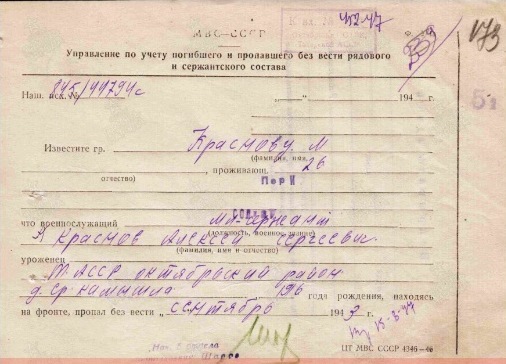 К вх. № 452-47
МВС—СССР
339
173
Управление по учету погибшего и пропавшего без вести рядового
и сержантского состава
Наш. исх. № 845/44794с
„ “ 194 г.
51
Известите гр. Краснову М
(фамилия, имя,
отчество)
, проживающ. 26
что военнослужащий мл-сержант
(должность, военное звание)
Краснов Алексей Сергеевич
(фамилия, имя и отчество)
уроженец
ТАССР октябрьский район
д. Ср-камышла 1916 года рождения, находясь
на фронте, пропал без вести „ сентябрь 1943 г.
15-3-47
ЦТ МВС СССР 4346—46